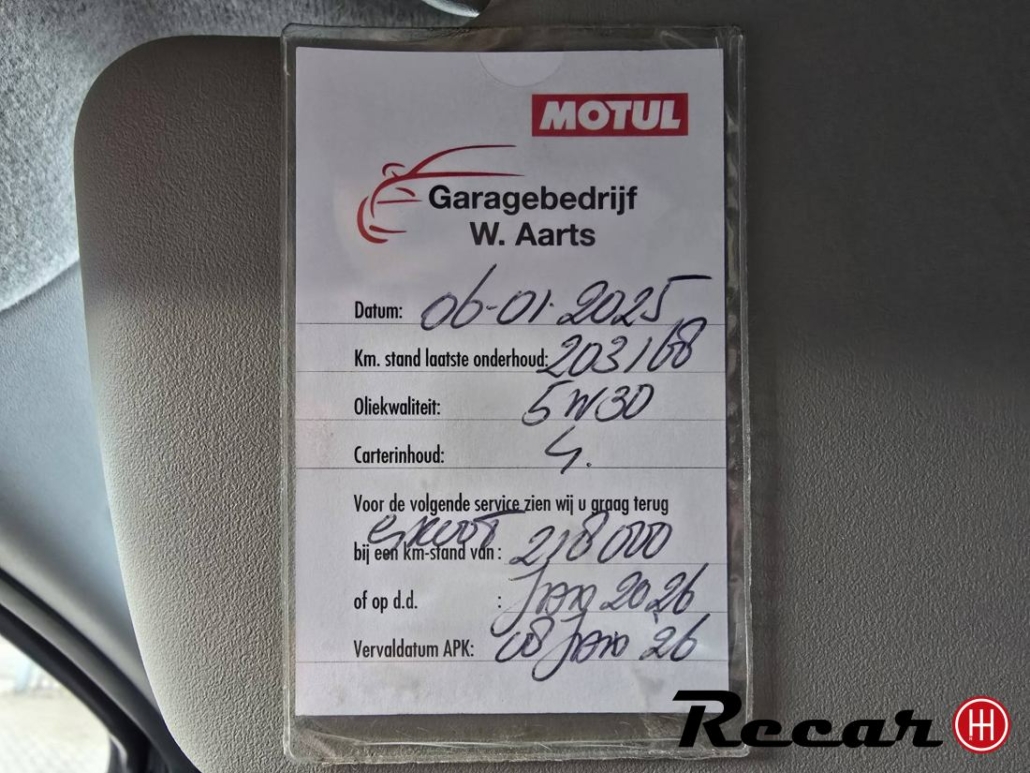 MOTUL
Garagebedrijf
W. Aarts
Datum: 06-01-2025
Km. stand laatste onderhoud: 203168
Oliekwaliteit: 5W30
Carterinhoud: 4.
Voor de volgende service zien wij u graag terug
bij een km-stand van: 218000
of op d.d. : Jan 2026
Vervaldatum APK: 08 Jan '26
Recar H